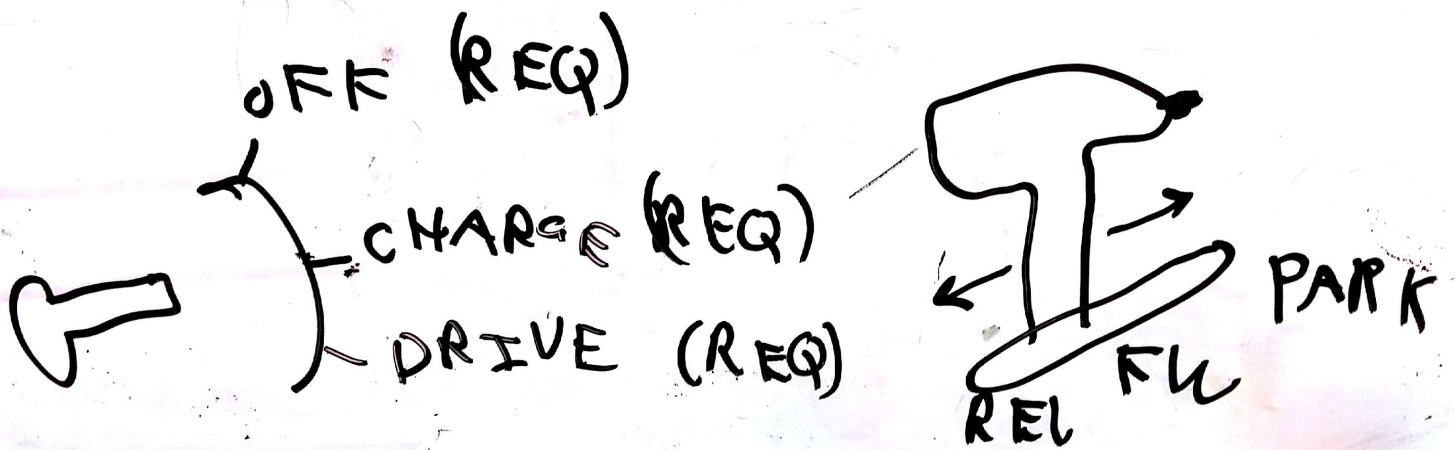 OFF (REQ)
CHARGE (REQ)
DRIVE (REQ)
PARK